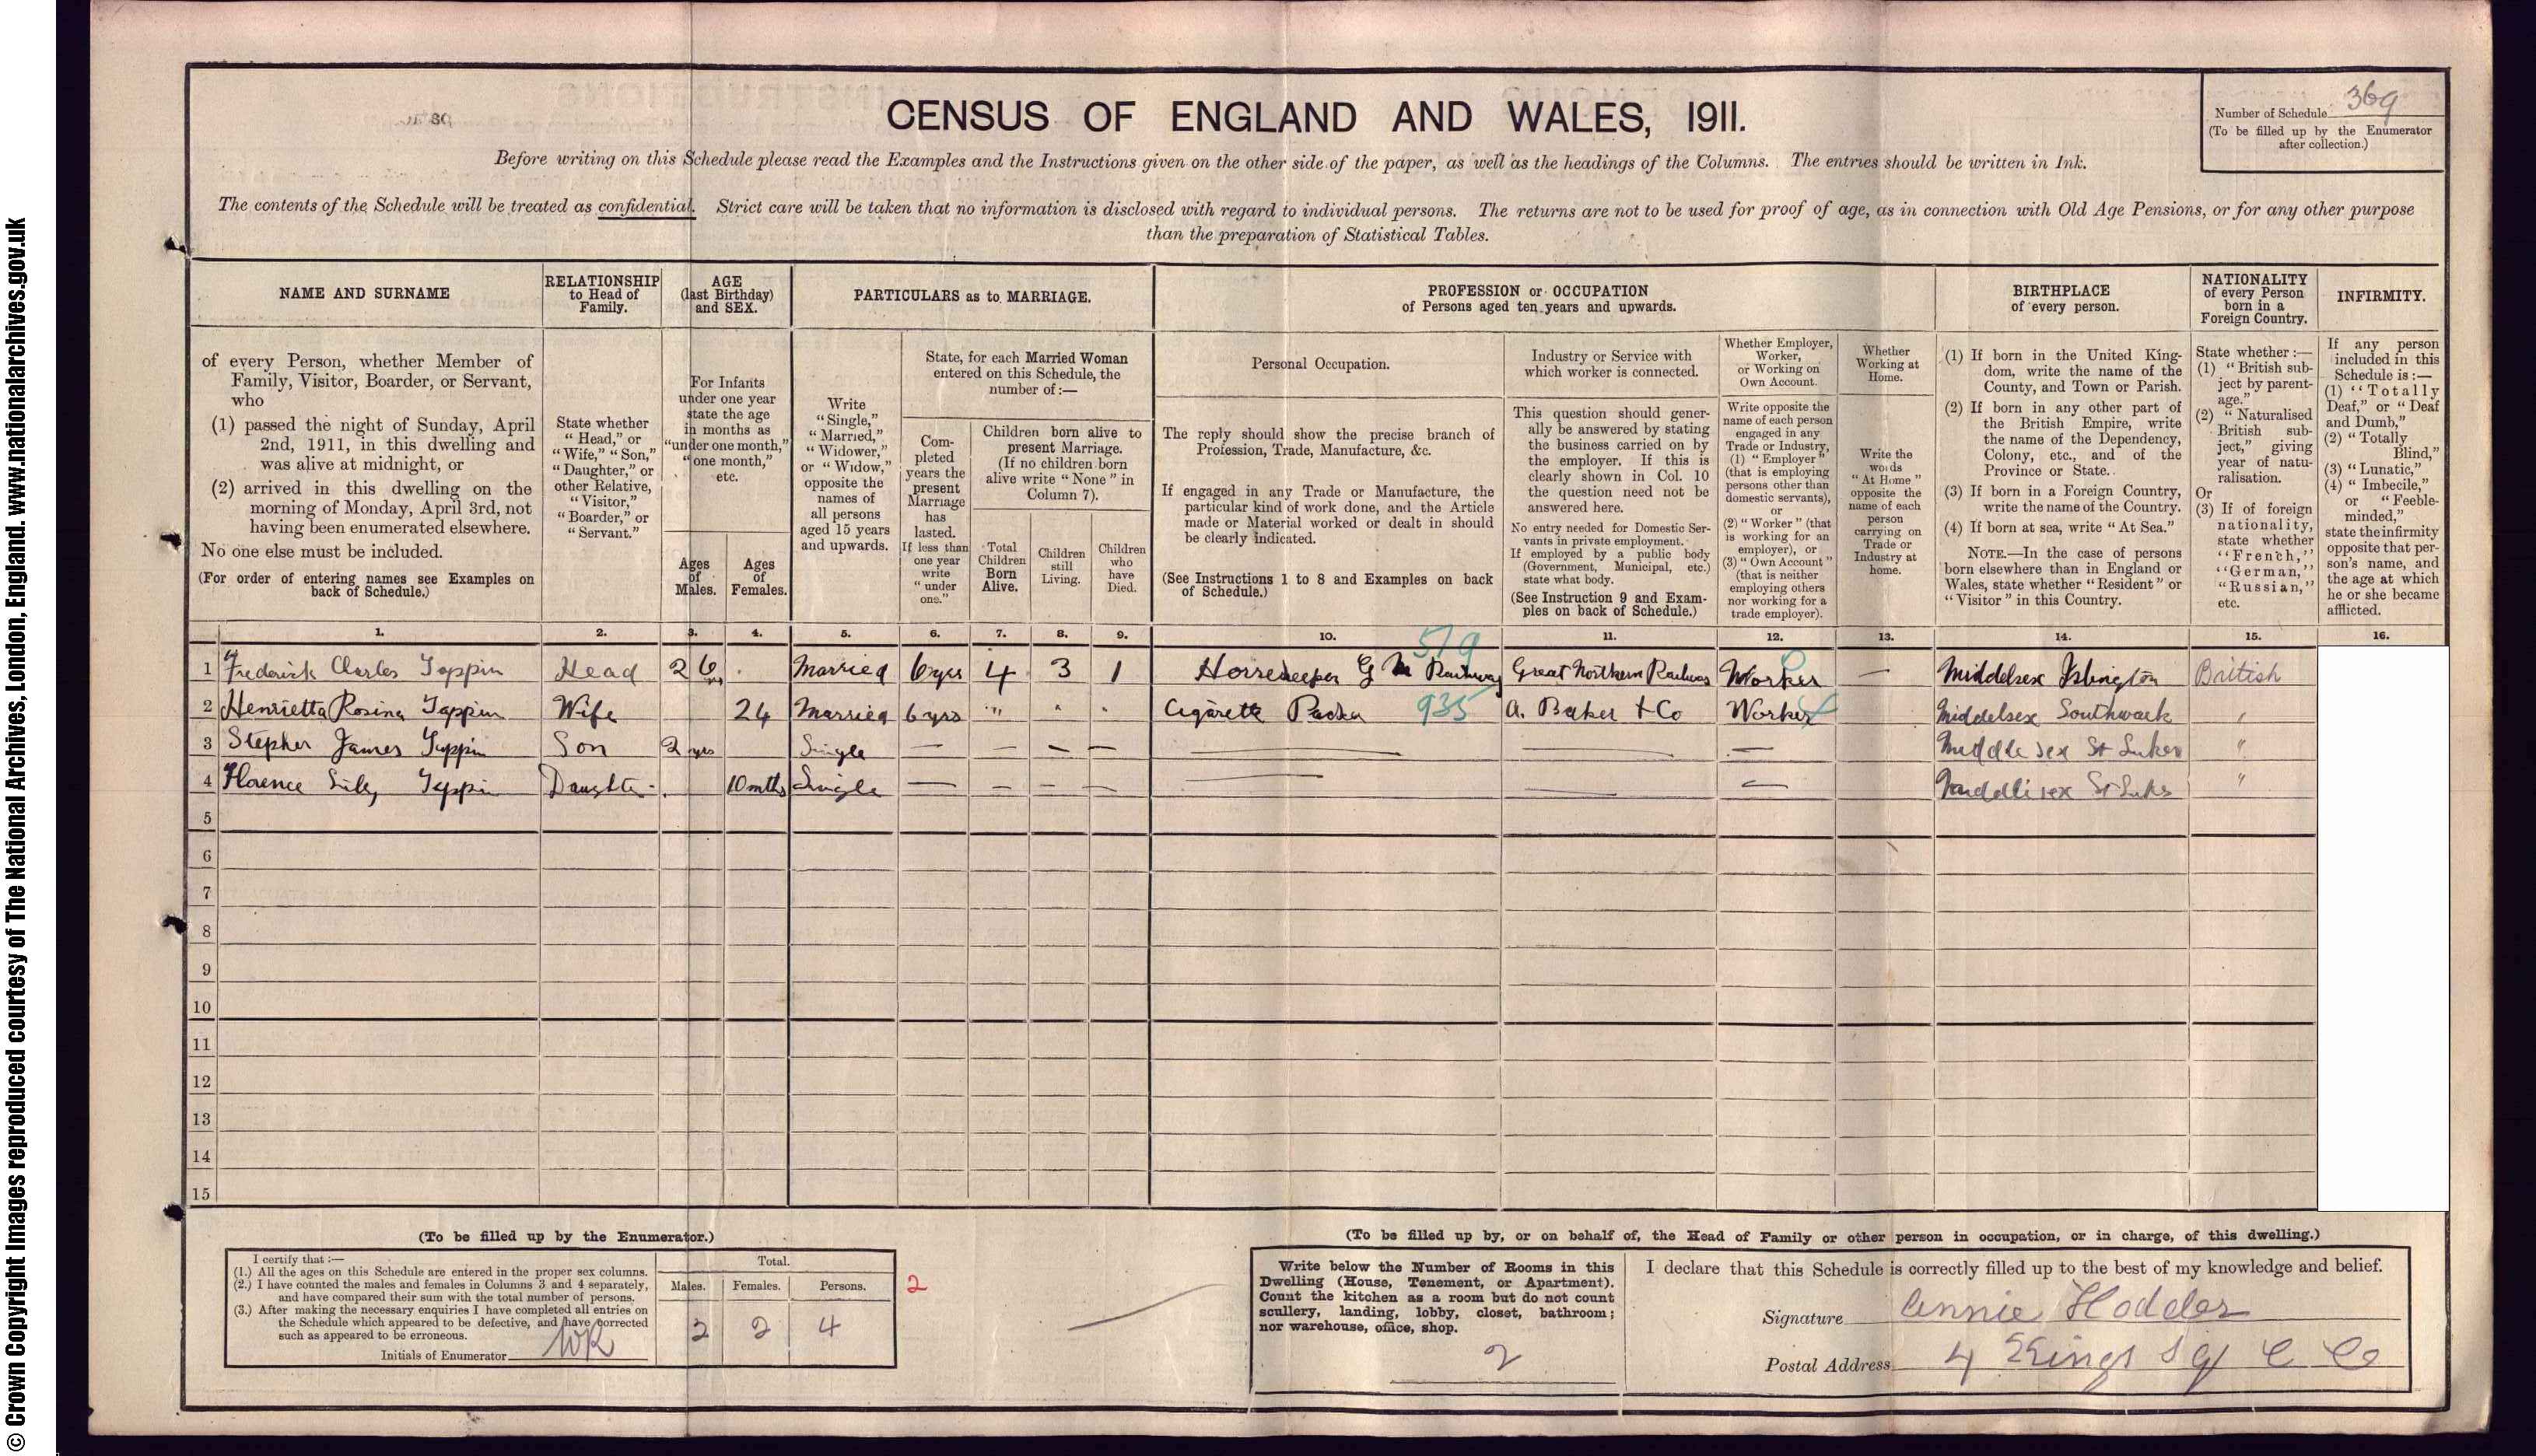 © Crown Copyright Images reproduced courtesy of The National Archives, London, England. www.nationalarchives.gov.uk
CENSUS OF ENGLAND AND WALES, 1911.
Number of Schedule 369
(To be filled up by the Enumerator
after collection.)
Before writing on this Schedule please read the Examples and the Instructions given on the other side of the paper, as well as the headings of the Columns. The entries should be written in Ink.
The contents of the Schedule will be treated as confidential. Strict care will be taken that no information is disclosed with regard to individual persons. The returns are not to be used for proof of age, as in connection with Old Age Pensions, or for any other purpose
than the preparation of Statistical Tables.
NAME AND SURNAME
of every Person, whether Member of
Family, Visitor, Boarder, or Servant,
who
(1) passed the night of Sunday, April
2nd, 1911, in this dwelling and
was alive at midnight, or
(2) arrived in this dwelling on the
morning of Monday, April 3rd, not
having been enumerated elsewhere.
No one else must be included.
(For order of entering names see Examples on
back of Schedule.)
RELATIONSHIP
to Head of
Family.
State whether
"Head," or
"Wife," "Son,"
"Daughter," or
other Relative,
"Visitor,"
"Boarder," or
"Servant."
AGE
(last Birthday)
and SEX.
For Infants
under one year
state the age
in months as
"under one month,"
"one month,"
etc.
Ages
of
Males.
Ages
of
Females.
PARTICULARS as to MARRIAGE.
Write
"Single,"
"Married,"
"Widower,"
or "Widow,"
opposite the
names of
all persons
aged 15 years
and upwards.
State, for each Married Woman
entered on this Schedule, the
number of:—
Com-
pleted
years the
present
Marriage
has
lasted.
If less than
one year
write
"under
one."
Children born alive to
present Marriage.
(If no children born
alive write "None" in
Column 7).
Total
Children
Born
Alive.
Children
still
Living.
Children
who
have
Died.
PROFESSION or OCCUPATION
of Persons aged ten years and upwards.
Personal Occupation.
The reply should show the precise branch of
Profession, Trade, Manufacture, &c.
If engaged in any Trade or Manufacture, the
particular kind of work done, and the Article
made or Material worked or dealt in should
be clearly indicated.
(See Instructions 1 to 8 and Examples on back
of Schedule.)
Industry or Service with
which worker is connected.
This question should gener-
ally be answered by stating
the business carried on by
the employer. If this is
clearly shown in Col. 10
the question need not be
answered here.
No entry needed for Domestic Ser-
vants in private employment.
If employed by a public body
(Government, Municipal, etc.)
state what body.
(See Instruction 9 and Exam-
ples on back of Schedule.)
Whether Employer,
Worker,
or Working on
Own Account.
Write opposite the
name of each person
engaged in any
Trade or Industry,
(1) "Employer"
(that is employing
persons other than
domestic servants),
or
(2) "Worker" (that
is working for an
employer), or
(3) "Own Account"
(that is neither
employing others
nor working for a
trade employer).
Whether
Working at
Home.
Write the
words
"At Home"
opposite the
name of each
person
carrying on
Trade or
Industry at
home.
BIRTHPLACE
of every person.
(1) If born in the United King-
dom, write the name of the
County, and Town or Parish.
(2) If born in any other part of
the British Empire, write
the name of the Dependency,
Colony, etc., and of the
Province or State.
(3) If born in a Foreign Country,
write the name of the Country.
(4) If born at sea, write "At Sea."
NOTE.—In the case of persons
born elsewhere than in England or
Wales, state whether "Resident" or
"Visitor" in this Country.
NATIONALITY
of every Person
born in a
Foreign Country.
State whether:—
(1) "British sub-
ject by parent-
age."
(2) "Naturalised
British sub-
ject," giving
year of natu-
ralisation.
Or
(3) If of foreign
nationality,
state whether
"French,"
"German,"
"Russian,"
etc.
INFIRMITY.
If any person
included in this
Schedule is:—
(1) "Totally
Deaf," or "Deaf
and Dumb,"
(2) "Totally
Blind,"
(3) "Lunatic,"
(4) "Imbecile,"
or "Feeble-
minded,"
state the infirmity
opposite that per-
son's name, and
the age at which
he or she became
afflicted.
1. 2. 3. 4. 5. 6. 7. 8. 9. 10. 11. 12. 13. 14. 15. 16.
519
1 Frederick Charles Tappin Head 26 Married 6 yrs 4 3 1 Horsekeeper G N Railway Great Northern Railway Worker — Middelsex Islington British
2 Henrietta Rosina Tappin Wife 24 Married 6 yrs " " " Cigarette Packer 935 A. Baker + Co Worker Middelsex Southwark "
3 Stephen James Tappin Son 2 yrs Single — — — — — — — Middlesex St Lukes "
4 Florence Lily Tappin Daughter 10 mths Single — — — — — — — Middlesex St Lukes "
5
6
7
8
9
10
11
12
13
14
15
(To be filled up by the Enumerator.)
I certify that:—
(1.) All the ages on this Schedule are entered in the proper sex columns.
(2.) I have counted the males and females in Columns 3 and 4 separately,
and have compared their sum with the total number of persons.
(3.) After making the necessary enquiries I have completed all entries on
the Schedule which appeared to be defective, and have corrected
such as appeared to be erroneous.
Initials of Enumerator WR
Total.
Males. Females. Persons.
2 2 4
2
(To be filled up by, or on behalf of, the Head of Family or other person in occupation, or in charge, of this dwelling.)
Write below the Number of Rooms in this
Dwelling (House, Tenement, or Apartment).
Count the kitchen as a room but do not count
scullery, landing, lobby, closet, bathroom;
nor warehouse, office, shop.
2
I declare that this Schedule is correctly filled up to the best of my knowledge and belief.
Signature Annie Hodder
Postal Address 4 Kings Sq E C